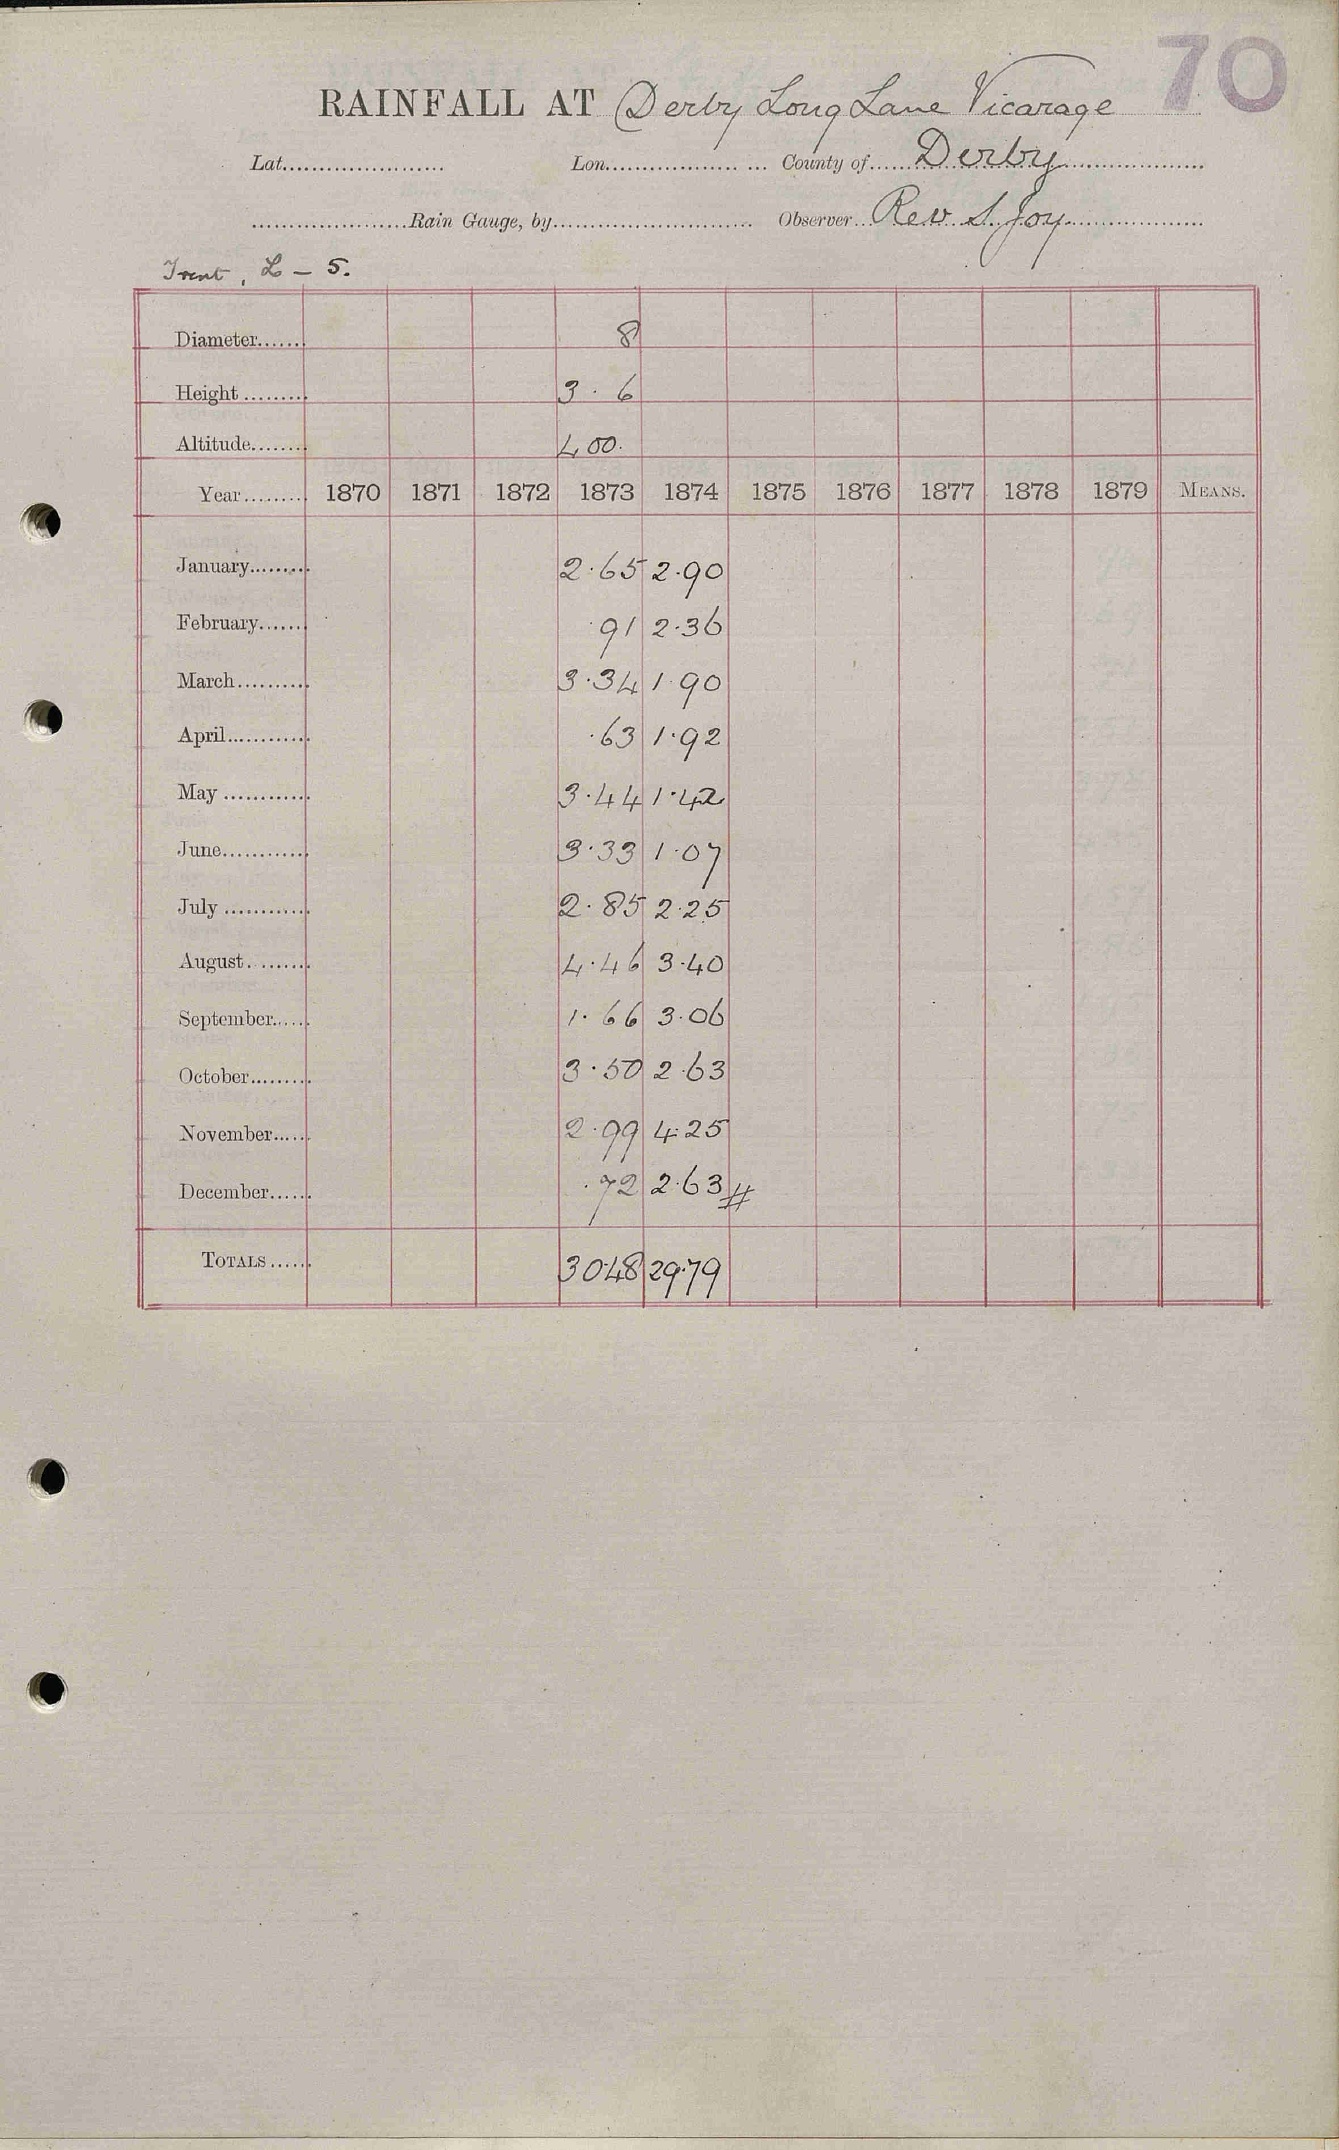 70
RAINFALL AT Derby Long Lane Vicarage
Lat...................... Lon................... ... County of...... Derby
.....................Rain Gauge, by........................... Observer... Rev S. Joy
Trent, L - 5.
Diameter...... 8
Height ......... 3 . 6
Altitude........ 400.
Year........ 1870 1871 1872 1873 1874 1875 1876 1877 1878 1879 MEANS.
January......... 2.65 2.90
February...... .91 2.36
March.......... 3.34 1.90
April............ .63 1.92
May ............ 3.44 1.42
June............ 3.33 1.07
July ............ 2.85 2.25
August......... 4.46 3.40
September..... 1.66 3.06
October......... 3.50 2.63
November..... 2.99 4.25
December...... .72 2.63 #
TOTALS ...... 30.48 29.79